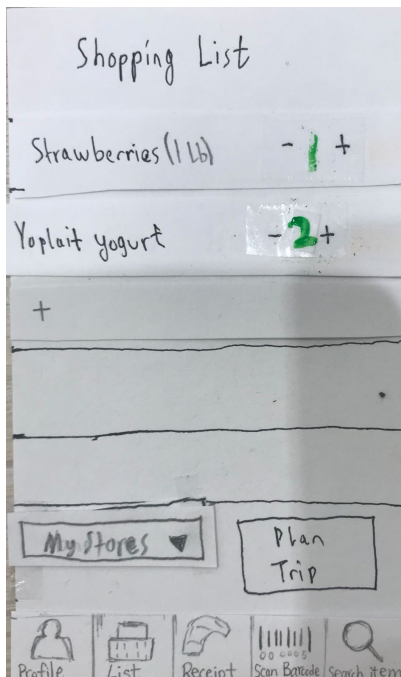 Shopping List
Strawberries (1 Lb) - 1 +
Yoplait yogurt - 2 +
+
My Stores ▼
Plan
Trip
Profile List Receipt Scan Barcode Search item